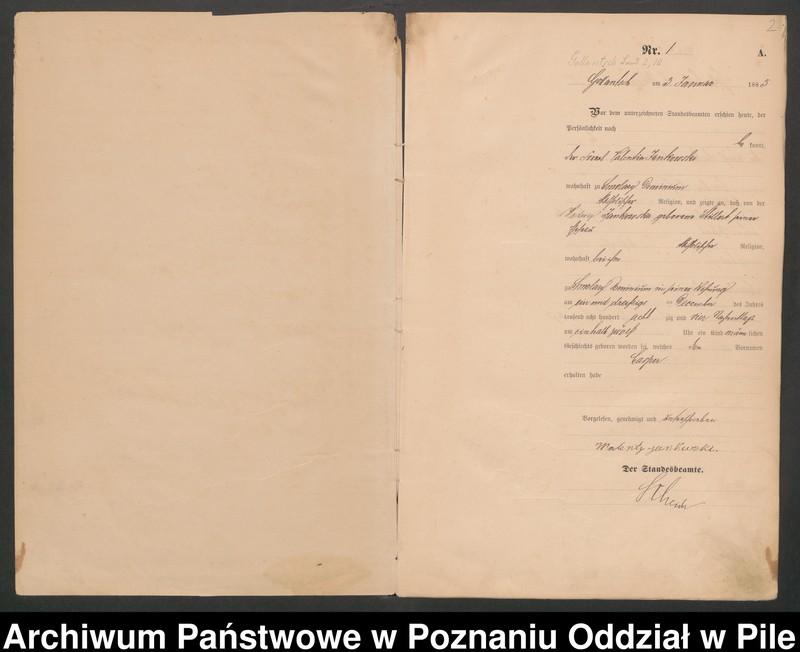 2
Nr. 1
A.
Gollantsch Land 2, III
Gollantsch am 3 Januar 1885
Vor dem unterzeichneten Standesbeamten erschien heute, der
Persönlichkeit nach
be kannt,
der Valentin Jankowski
wohnhaft zu Smolary Dominium
katholischer Religion, und zeigte an, daß von der
Hedwig Jankowska geborene seiner
Ehefrau
katholischer Religion,
wohnhaft bei ihm
zu Smolary Dominium in seiner Wohnung
am ein und dreißigsten December des Jahres
tausend acht hundert acht zig und vier
um Uhr ein Kind männ lichen
Geschlechts geboren worden sei, welches den Vornamen
Casper
erhalten habe
Vorgelesen, genehmigt und unterschrieben
Walenty Jankowski.
Der Standesbeamte.
Archiwum Państwowe w Poznaniu Oddział w Pile